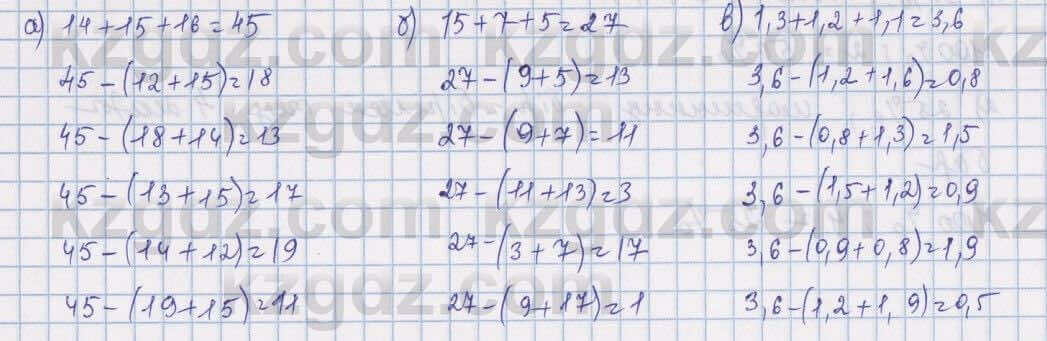 а) 14+15+16=45
45-(12+15)=18
45-(18+14)=13
45-(13+15)=17
45-(14+12)=19
45-(19+15)=11
б) 15+7+5=27
27-(9+5)=13
27-(9+7)=11
27-(11+13)=3
27-(3+7)=17
27-(9+17)=1
в) 1,3+1,2+1,1=3,6
3,6-(1,2+1,6)=0,8
3,6-(0,8+1,3)=1,5
3,6-(1,5+1,2)=0,9
3,6-(0,9+0,8)=1,9
3,6-(1,2+1,9)=0,5
kzgdz.com